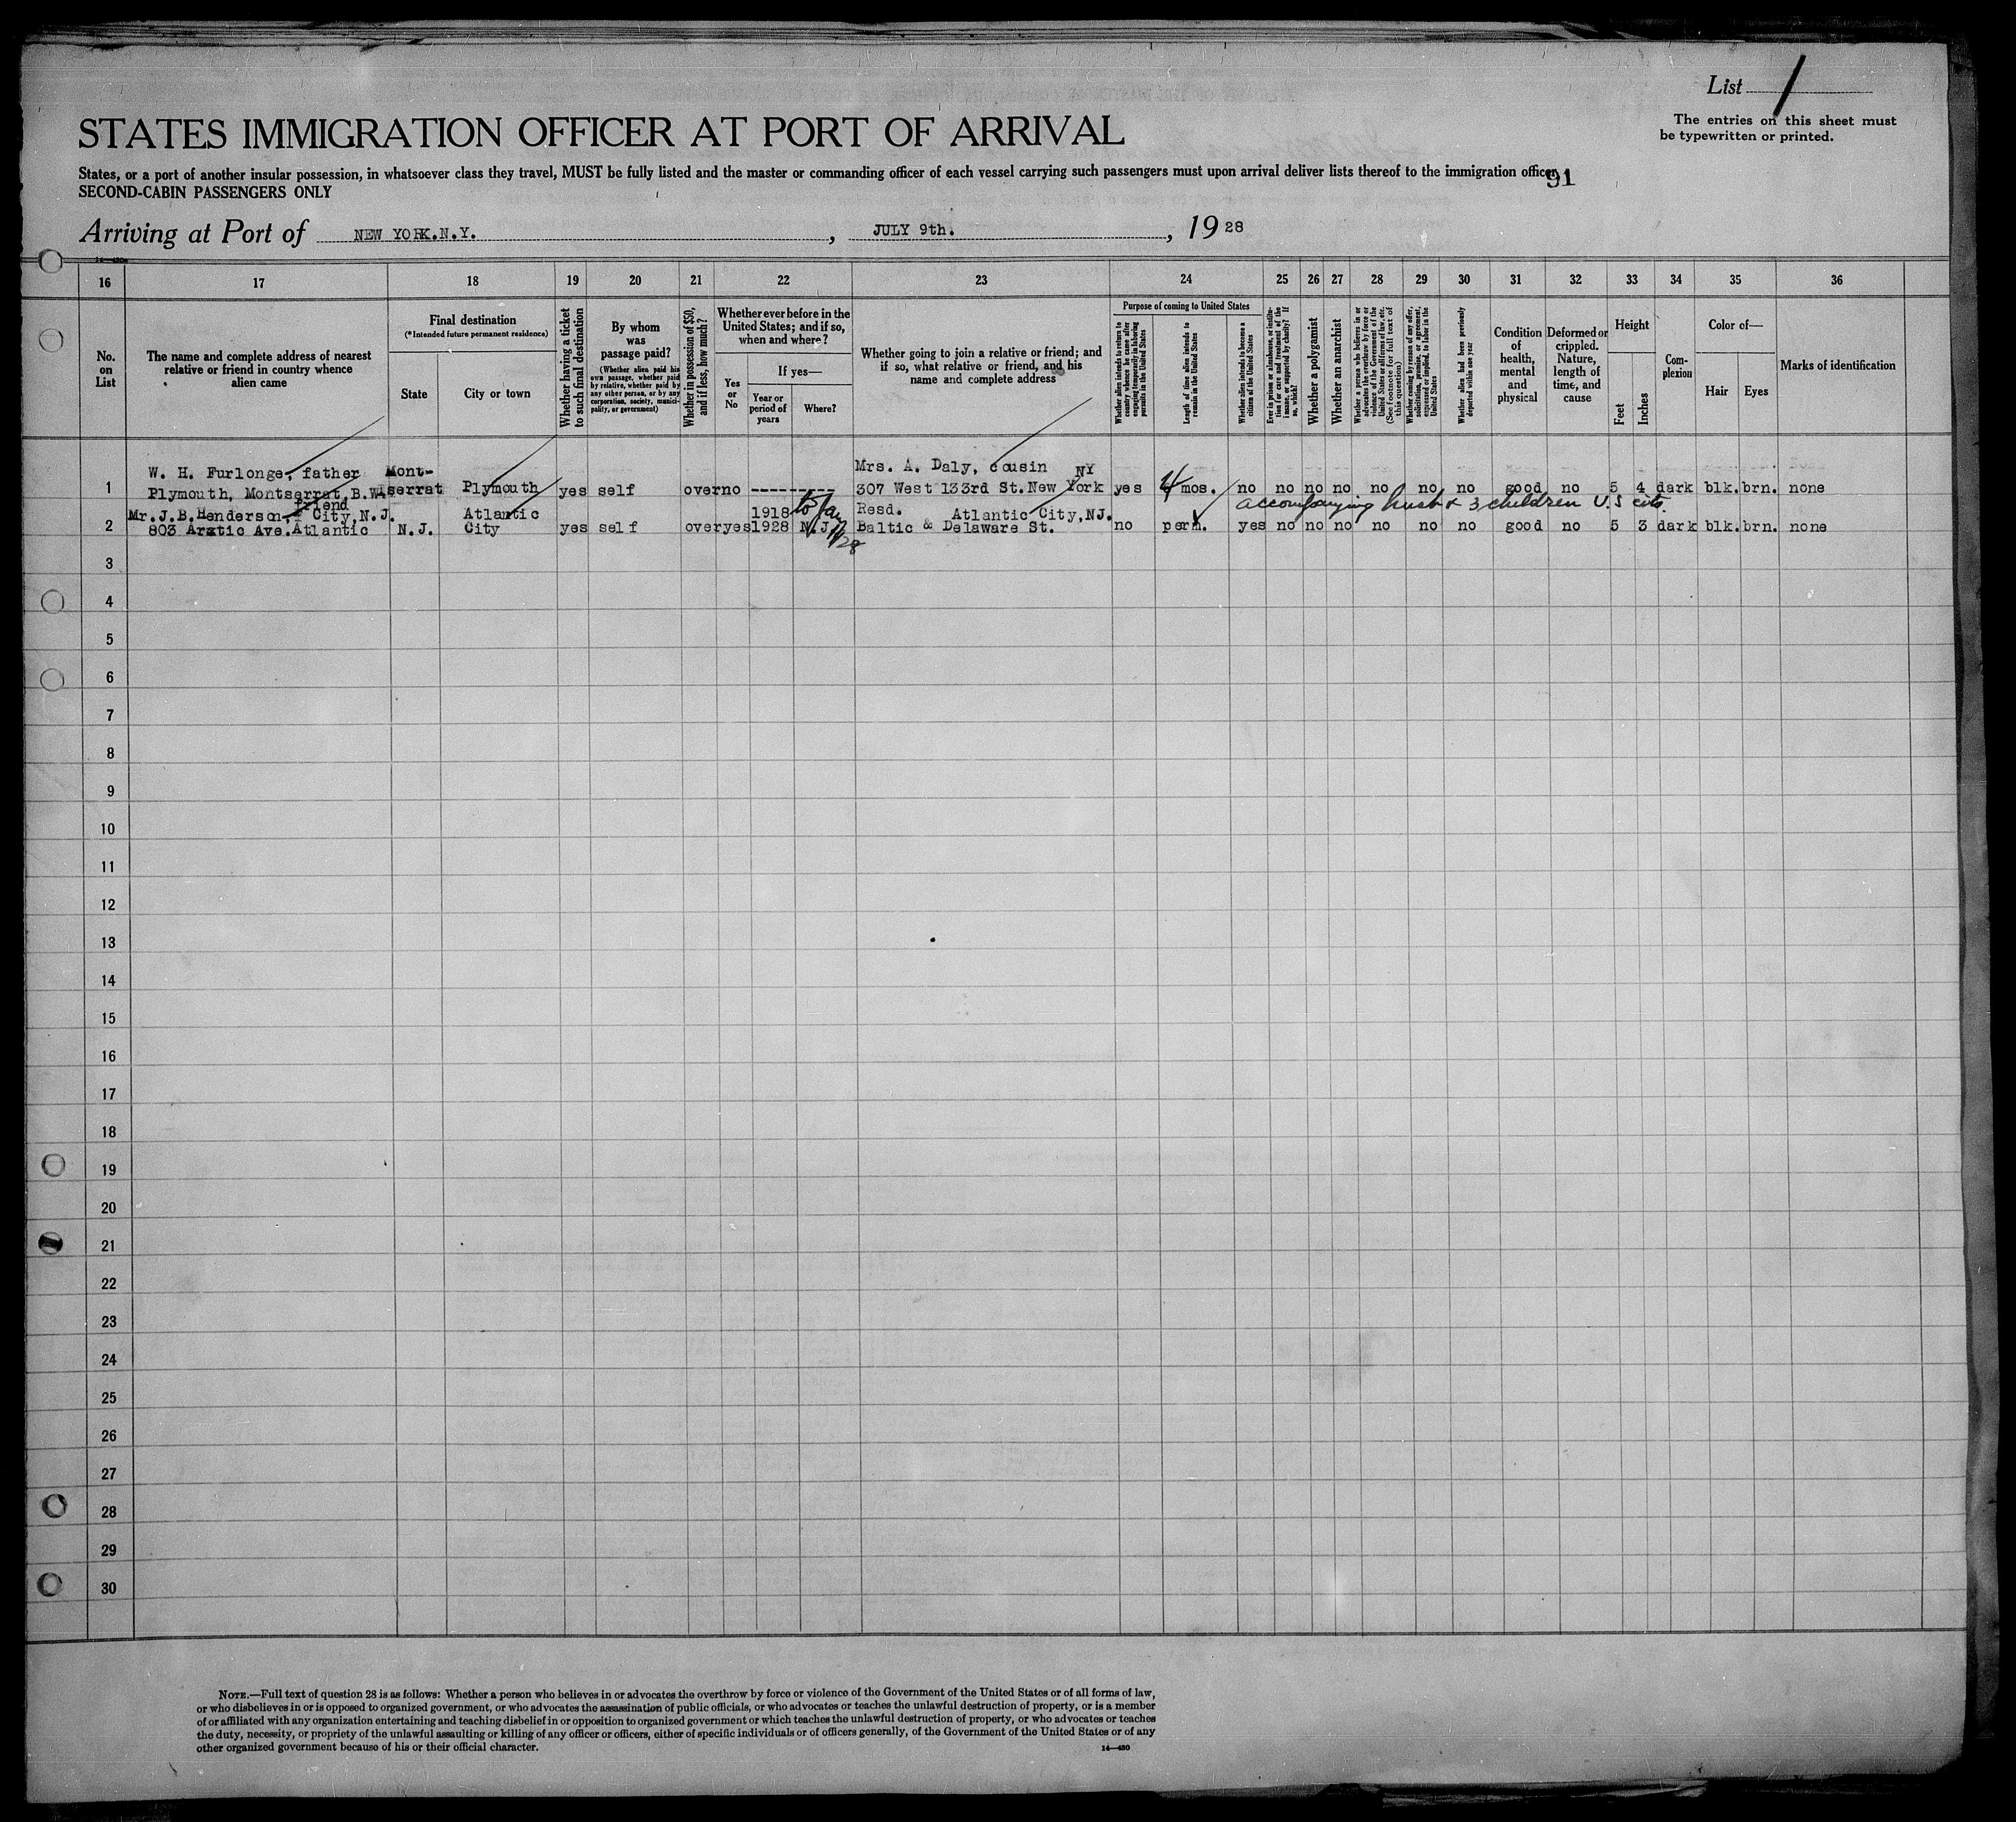 List 1
The entries on this sheet must
be typewritten or printed.
STATES IMMIGRATION OFFICER AT PORT OF ARRIVAL
States, or a port of another insular possession, in whatsoever class they travel, MUST be fully listed and the master or commanding officer of each vessel carrying such passengers must upon arrival deliver lists thereof to the immigration officer
91
SECOND-CABIN PASSENGERS ONLY
Arriving at Port of NEW YORK.N.Y. , JULY 9th. , 19 28
14—430
16 17 18 19 20 21 22 23 24 25 26 27 28 29 30 31 32 33 34 35 36
No.
on
List
The name and complete address of nearest
relative or friend in country whence
alien came
Final destination
(*Intended future permanent residence)
State
City or town
Whether having a ticket
to such final destination
By whom
was
passage paid?
(Whether alien paid his
own passage, whether paid
by relative, whether paid by
any other person, or by any
corporation, society, munici-
pality, or government)
Whether in possession of $50,
and if less, how much?
Whether ever before in the
United States; and if so,
when and where?
Yes
or
No
If yes—
Year or
period of
years
Where?
Whether going to join a relative or friend; and
if so, what relative or friend, and his
name and complete address
Purpose of coming to United States
Whether alien intends to return to
country whence he came after
engaging temporarily in laboring
pursuits in the United States
Length of time alien intends to
remain in the United States
Whether alien intends to become a
citizen of the United States
Ever in prison or almshouse, or institu-
tion for care and treatment of the
insane, or supported by charity? If
so, which?
Whether a polygamist
Whether an anarchist
Whether a person who believes in or
advocates the overthrow by force or
violence of the Government of the
United States or all forms of law, etc.
(See footnote for full text of
this question)
Whether coming by reason of any offer,
solicitation, promise, or agreement,
expressed or implied, to labor in the
United States
Whether alien had been previously
deported within one year
Condition
of
health,
mental
and
physical
Deformed or
crippled.
Nature,
length of
time, and
cause
Height
Feet
Inches
Com-
plexion
Color of—
Hair
Eyes
Marks of identification
W. H. Furlonge, father Mont- Mrs. A. Daly, cousin NY
1 Plymouth, Montserrat,B.W. serrat Plymouth yes self over no --------- 307 West 133rd St.New York yes 4 mos. no no no no no no no good no 5 4 dark blk. brn. none
friend accompanying husb & 3 children U.S cits.
Mr.J.B.Henderson, City,N.J. Atlantic 1918 to Resd. Atlantic City,NJ.
2 803 Arctic Ave.Atlantic N.J. City yes self over yes 1928 N.J. Baltic & Delaware St. no perm. yes no no no no no no good no 5 3 dark blk. brn. none
28
3
4
5
6
7
8
9
10
11
12
13
14
15
16
17
18
19
20
21
22
23
24
25
26
27
28
29
30
NOTE.—Full text of question 28 is as follows: Whether a person who believes in or advocates the overthrow by force or violence of the Government of the United States or of all forms of law,
or who disbelieves in or is opposed to organized government, or who advocates the assassination of public officials, or who advocates or teaches the unlawful destruction of property, or is a member
of or affiliated with any organization entertaining and teaching disbelief in or opposition to organized government or which teaches the unlawful destruction of property, or who advocates or teaches
the duty, necessity, or propriety of the unlawful assaulting or killing of any officer or officers, either of specific individuals or of officers generally, of the Government of the United States or of any
other organized government because of his or their official character.
14—430